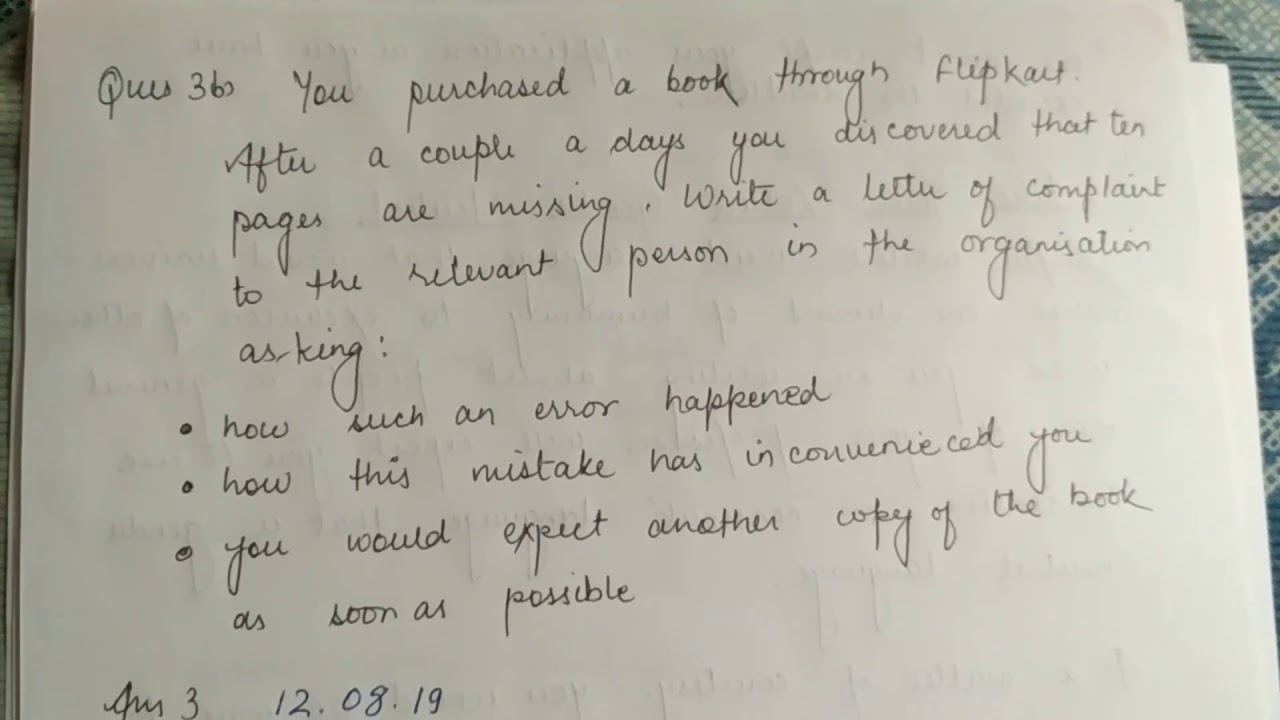 Ques 3b) You purchased a book through flipkart.
After a couple a days you discovered that ten
pages are missing. Write a letter of complaint
to the relevant person in the organisation
asking:
• how such an error happened
• how this mistake has inconvenieced you
• you would expect another copy of the book
as soon as possible
Ans 3 12.08.19